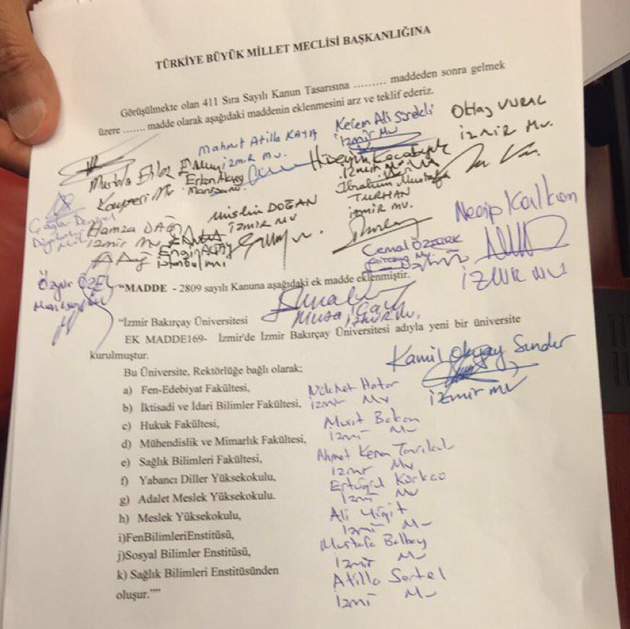 TÜRKİYE BÜYÜK MİLLET MECLİSİ BAŞKANLIĞINA
Görüşülmekte olan 411 Sıra Sayılı Kanun Tasarısına ......... maddeden sonra gelmek
üzere ....... madde olarak aşağıdaki maddenin eklenmesini arz ve teklif ederiz.
Mahmut Atilla KAYA
İzmir Mv.
Kerem Ali Sürekli
İzmir Mv
Oktay VURAL
İZMİR Mv.
Mustafa
Erkan Akçay
Manisa
Hüseyin Kocabıyık
İzmir Mv
İbrahim Mustafa
TURHAN
İzmir mv.
Hamza DAĞ
İzmir Mv
Müslüm DOĞAN
İZMİR MV
Engin Altay
İstanbul mv
Necip Kalkan
İZMİR MV
Özgür ÖZEL
"MADDE - 2809 sayılı Kanuna aşağıdaki ek madde eklenmiştir.
Musa Çam
İzmir Mv.
"İzmir Bakırçay Üniversitesi
EK MADDE169- İzmir'de İzmir Bakırçay Üniversitesi adıyla yeni bir üniversite
kurulmuştur.
Kamil Okyay Sındır
İzmir mv
Bu Üniversite, Rektörlüğe bağlı olarak;
a) Fen-Edebiyat Fakültesi,
b) İktisadi ve İdari Bilimler Fakültesi,
c) Hukuk Fakültesi,
d) Mühendislik ve Mimarlık Fakültesi,
e) Sağlık Bilimleri Fakültesi,
f) Yabancı Diller Yüksekokulu,
g) Adalet Meslek Yüksekokulu.
h) Meslek Yüksekokulu,
i)FenBilimleriEnstitüsü,
j)Sosyal Bilimler Enstitüsü,
k) Sağlık Bilimleri Enstitüsünden
oluşur.""
Murat Bakan
İzmi Mv
Ahmet Kenan Tanrıkulu
İzmir Mv
Ertuğrul Kürkçü
İzmi Mv
Ali Yiğit
İzmi Mv
Mustafa Balbay
İzmir Mv
Atilla Sertel
İzmi Mv